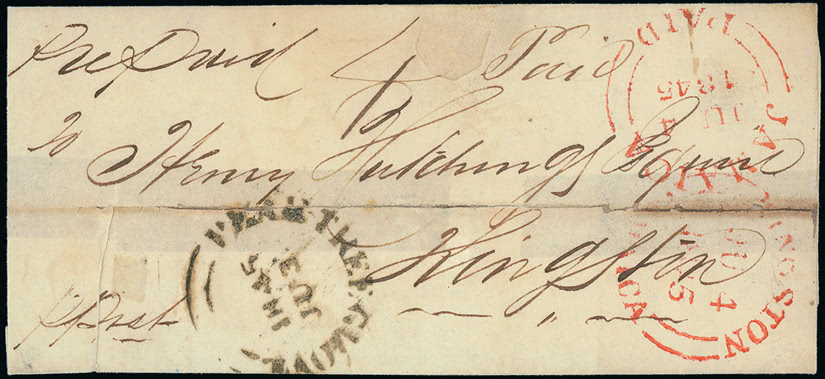 Pre Paid 4 Paid
To Henry Hutchings Esquire
Kingston
p Post
PEAR TREE GROVE
JU 3
1845
PAID
JU 4
1845
JAMAICA
KINGSTON
JU 4
JAMAICA